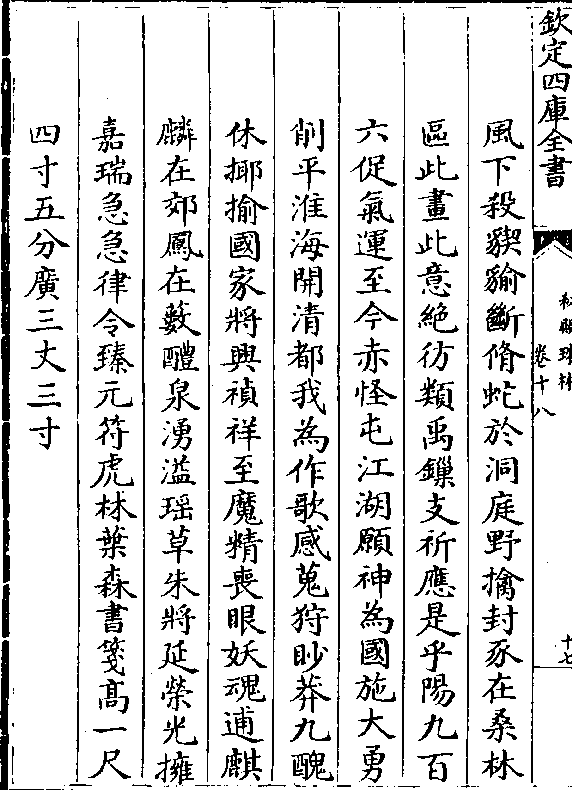 欽定四庫全書
秘殿珠林
卷十八
十七
風下殺猰貐斷脩蛇於洞庭野擒封豕在桑林
區此畫此意絶彷類禹鏁支祈應是乎陽九百
六促氣運至今赤怪屯江湖願神為國施大勇
削平淮海開清都我為作歌感蒐狩眇莽九醜
休揶揄國家將興禎祥至魔精喪眼妖魂逋麒
麟在郊鳳在藪醴泉湧溢瑶草朱將延榮光擁
嘉瑞急急律令臻元符虎林葉森書箋髙一尺
四寸五分廣三丈三寸